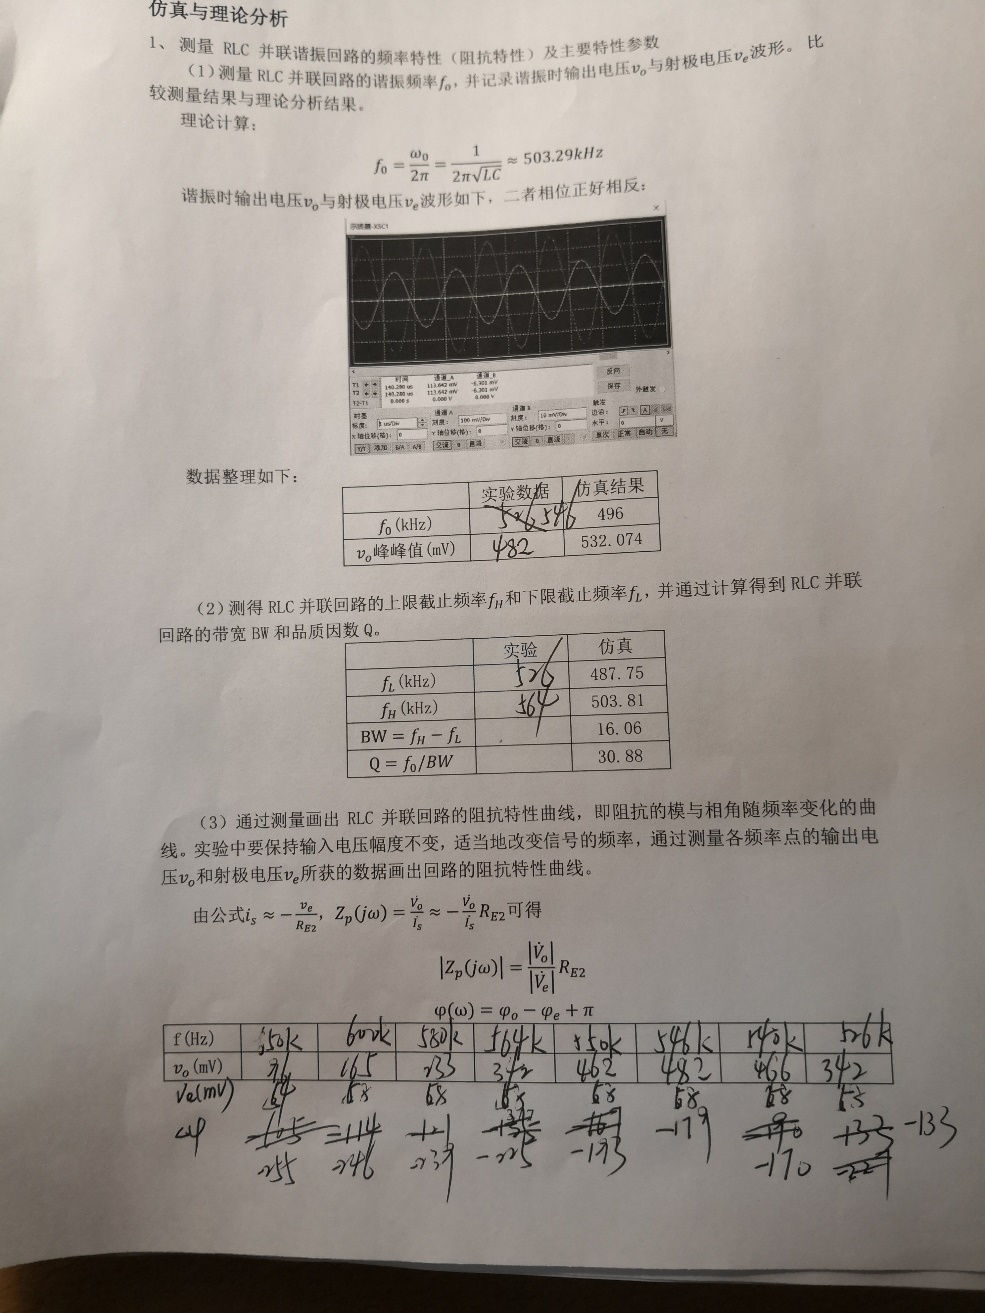 仿真与理论分析
1、测量 RLC 并联谐振回路的频率特性（阻抗特性）及主要特性参数
（1）测量 RLC 并联回路的谐振频率f₀，并记录谐振时输出电压vₒ与射极电压vₑ波形。比
较测量结果与理论分析结果。
理论计算：
f₀ = ω₀/2π = 1/2π√LC ≈ 503.29kHz
谐振时输出电压vₒ与射极电压vₑ波形如下，二者相位正好相反：
示波器-XSC1
时间 通道_A 通道_B
T1 140.280 us 113.642 mV -6.301 mV
T2 140.280 us 113.642 mV -6.301 mV
T2-T1 0.000 s 0.000 V 0.000 V
反向
保存 外触发
时基 通道 A 通道 B 触发
标度： 1 us/Div 刻度： 100 mV/Div 刻度： 10 mV/Div 边沿：
X 轴位移(格)： 0 Y 轴位移(格)： 0 Y 轴位移(格)： 0 水平： 0 V
Y/T 添加 B/A A/B 交流 0 直流 交流 0 直流 单次 正常 自动 无
数据整理如下：
实验数据 仿真结果
f₀(kHz) 526 546 496
vₒ峰峰值(mV) 482 532.074
（2）测得 RLC 并联回路的上限截止频率f_H和下限截止频率f_L，并通过计算得到 RLC 并联
回路的带宽 BW 和品质因数 Q。
实验 仿真
f_L(kHz) 526 487.75
f_H(kHz) 564 503.81
BW = f_H − f_L 16.06
Q = f₀/BW 30.88
（3）通过测量画出 RLC 并联回路的阻抗特性曲线，即阻抗的模与相角随频率变化的曲
线。实验中要保持输入电压幅度不变，适当地改变信号的频率，通过测量各频率点的输出电
压vₒ和射极电压vₑ所获的数据画出回路的阻抗特性曲线。
由公式iₛ ≈ −vₑ/R_E2，Zₚ(jω) = V̇ₒ/İₛ ≈ −V̇ₒ/İₛ R_E2可得
|Zₚ(jω)| = |V̇ₒ|/|V̇ₑ| R_E2
φ(ω) = φₒ − φₑ + π
f(Hz) 650k 600k 580k 564k 550k 546k 540k 526k
vₒ(mV) 165 233 342 462 482 466 342
Ve(mV) 68 68 68
Δφ -179 -133
-255 -246 -239 -225 -193 -170